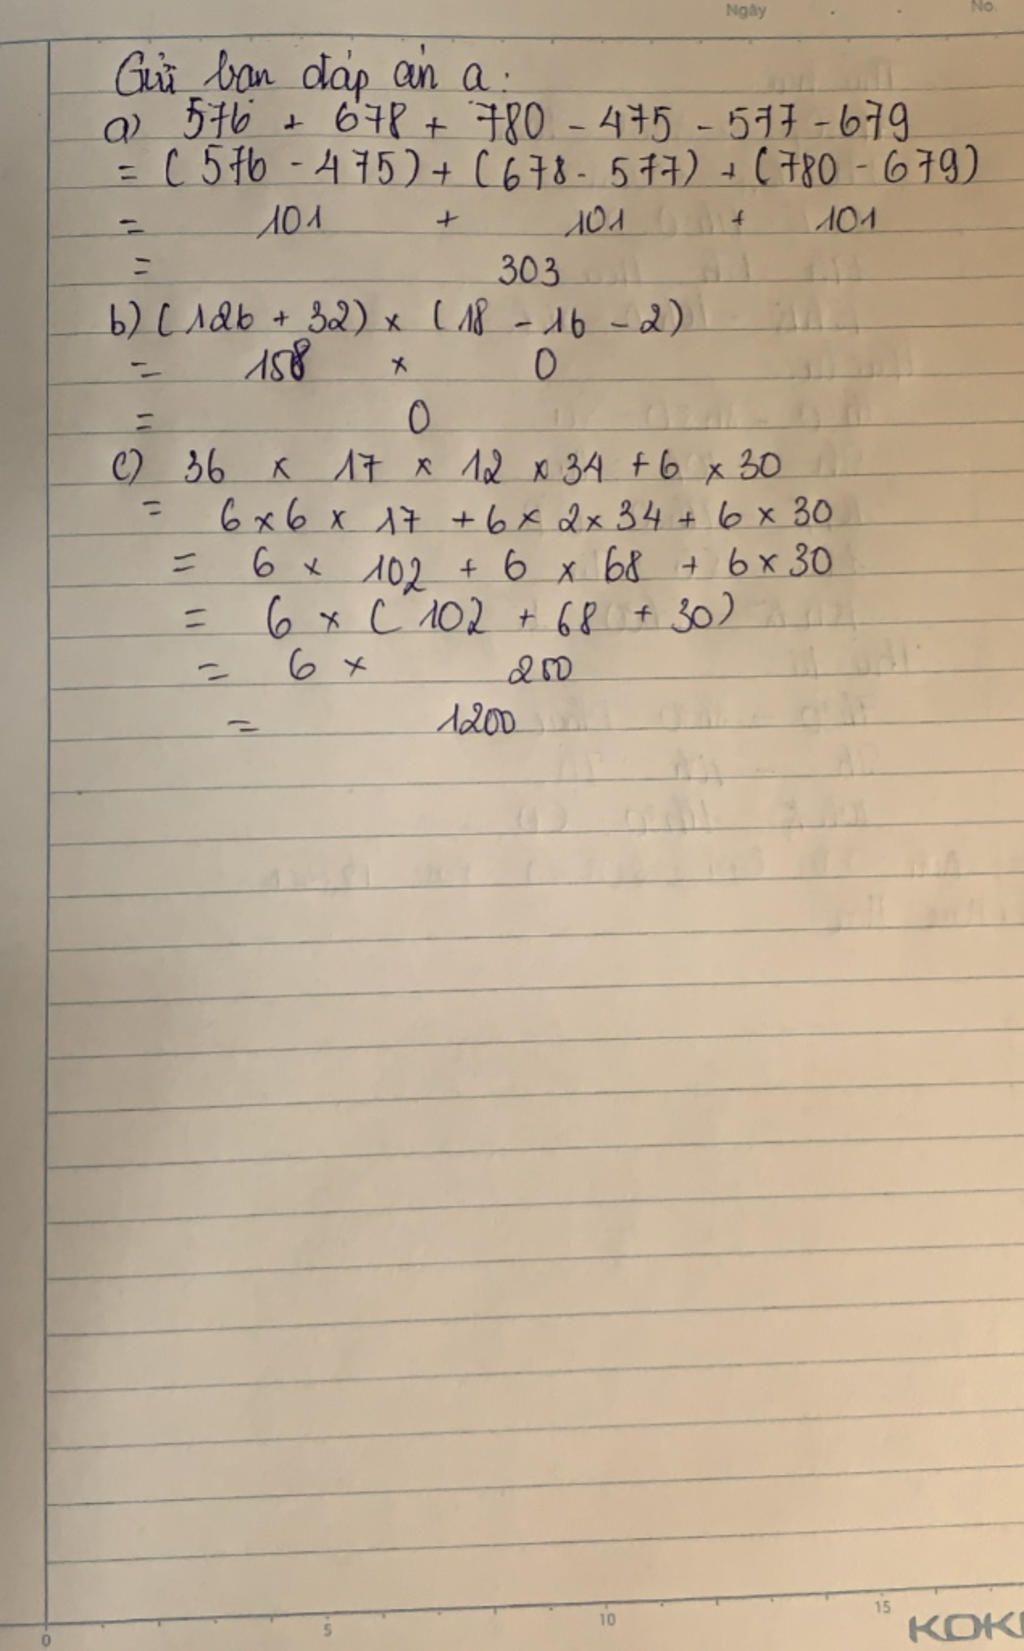 Ngày . . No.
Gửi bạn đáp án ạ:
a) 576 + 678 + 780 - 475 - 577 - 679
= (576 - 475) + (678 - 577) + (780 - 679)
= 101 + 101 + 101
= 303
b) (126 + 32) × (18 - 16 - 2)
= 158 × 0
= 0
c) 36 × 17 × 12 × 34 + 6 × 30
= 6 × 6 × 17 + 6 × 2 × 34 + 6 × 30
= 6 × 102 + 6 × 68 + 6 × 30
= 6 × (102 + 68 + 30)
= 6 × 200
= 1200
0 5 10 15